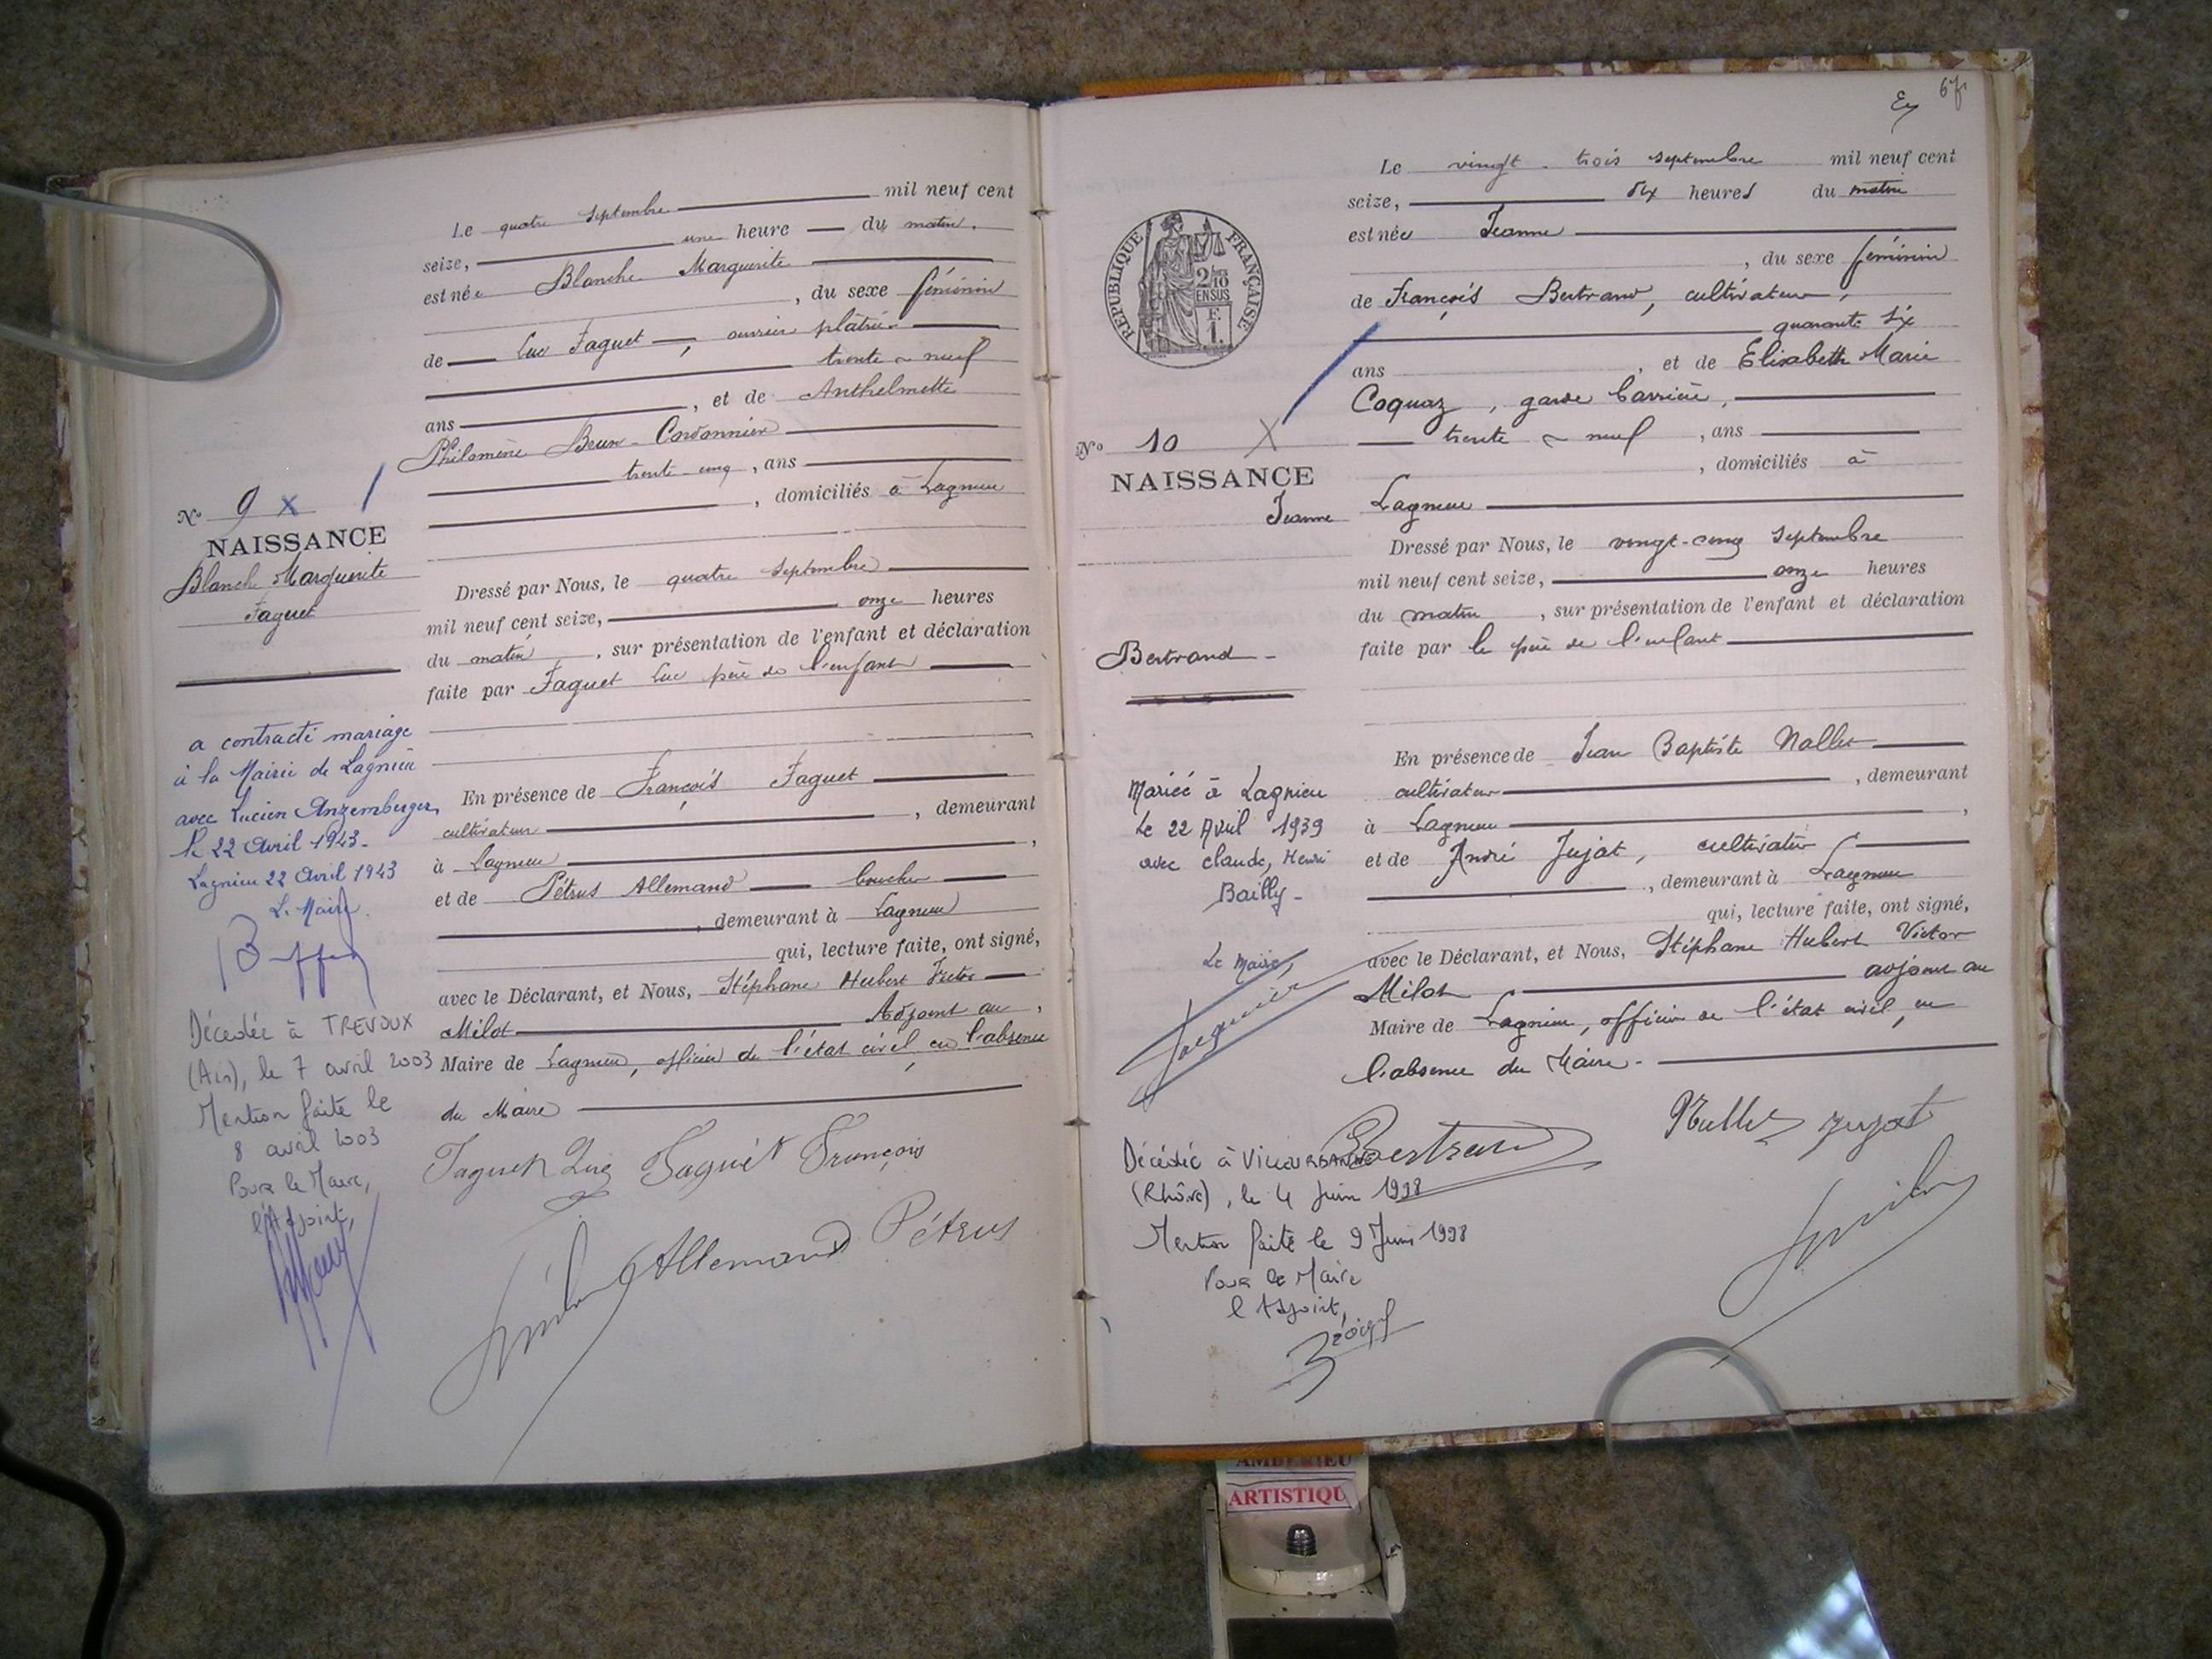 Le quatre septembre mil neuf cent
seize, une heure du matin.
est née Blanche Marguerite
, du sexe féminin
de Luc Faguet, ouvrier plâtrier
trente-neuf
ans , et de Anthelmette
Philomène Brun-Cordonnier
trente-cinq, ans
, domiciliés à Lagnieu
No 9 x
NAISSANCE
Blanche Marguerite
Faguet
Dressé par Nous, le quatre septembre
mil neuf cent seize, onze heures
du matin, sur présentation de l'enfant et déclaration
faite par Faguet Luc père de l'enfant
En présence de François Faguet
cultivateur , demeurant
à Lagnieu ,
et de Pétrus Allemand boucher
, demeurant à Lagnieu
qui, lecture faite, ont signé,
avec le Déclarant, et Nous, Stéphane Hubert Victor
Milot Adjoint au ,
Maire de Lagnieu, officier de l'état civil, en l'absence
du Maire
Faguet Luc Faguet François
Allemand Pétrus
a contracté mariage
à la Mairie de Lagnieu
avec Lucien Anzemberger
le 22 Avril 1943-
Lagnieu 22 Avril 1943
Le Maire
Décédée à TREVOUX
(Ain), le 7 avril 2003
Mention faite le
8 avril 2003
Pour le Maire,
l'Adjoint,
67
Le vingt-trois septembre mil neuf cent
seize, dix heures du matin
est née Jeanne
, du sexe féminin
de François Bertrand, cultivateur,
quarante six
ans , et de Elisabeth Marie
Coquaz, garde barrière,
trente-neuf , ans
, domiciliés à
Lagnieu
REPUBLIQUE FRANÇAISE
2/10 EN SUS
F. 1.
No 10 X
NAISSANCE
Jeanne
Bertrand -
Dressé par Nous, le vingt-cinq septembre
mil neuf cent seize, onze heures
du matin , sur présentation de l'enfant et déclaration
faite par le père de l'enfant
En présence de Jean Baptiste Nallet
cultivateur , demeurant
à Lagnieu ,
et de André Jujat, cultivateur
, demeurant à Lagnieu
qui, lecture faite, ont signé,
avec le Déclarant, et Nous, Stéphane Hubert Victor
Milot adjoint au
Maire de Lagnieu, officier de l'état civil, en
l'absence du Maire.
Bertrand Nallet Jujat
Mariée à Lagnieu
Le 22 Avril 1939
avec Claude, Henri
Bailly-
Le Maire,
Décédée à VILLEURBANNE
(Rhône), le 4 juin 1998
Mention faite le 9 Juin 1998
Pour le Maire
l'Adjoint,
AMBERIEU
ARTISTIQU